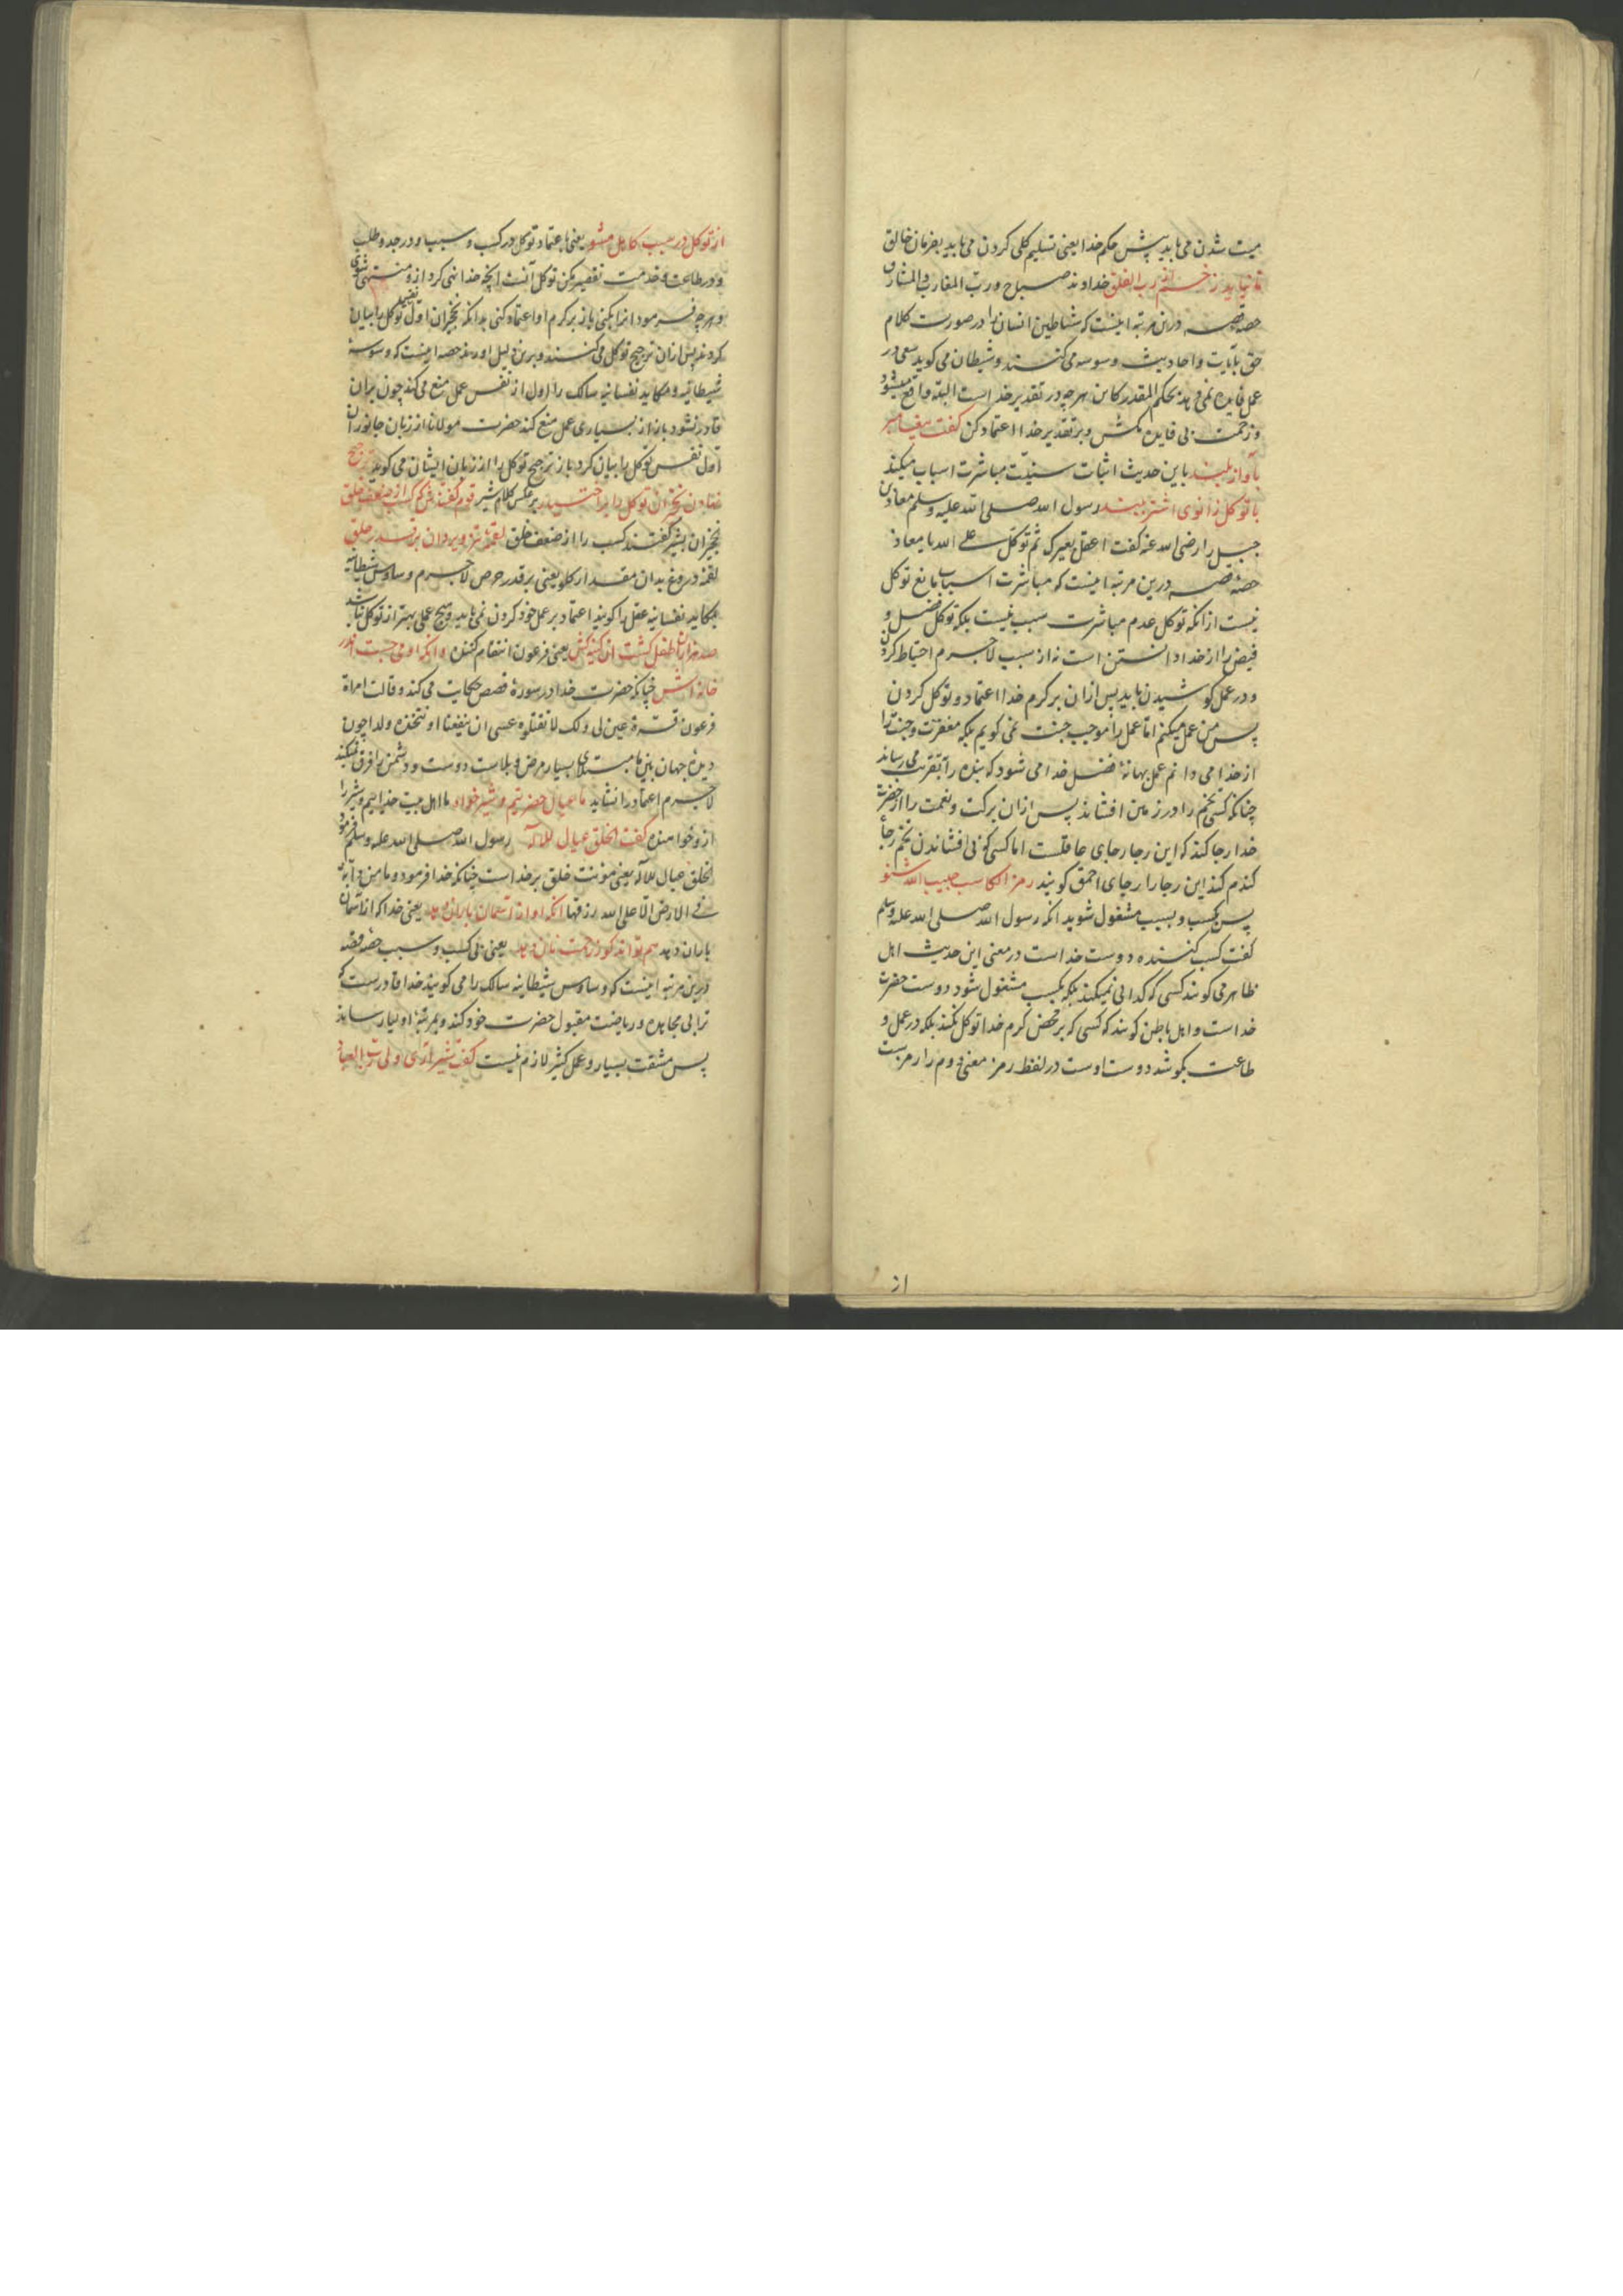 میت شدن می باید پیش حکم خدا یعنی تسلیم کلی کردن می باید بفرمان خالق
تا نیاید زخم از رب الفلق خداوند صباح و رب المغارب والمشارق
حصه قصه درین مرتبه اینست که شیاطین انسان را در صورت کلام
حق بآیات و احادیث وسوسه می کنند و شیطان می کوید سعی در
عمل فایده نمی دهد بحکم المقدر کاین هرچه در تقدیر خداست البته واقع میشود
و زحمت بی فایده مکش و بر تقدیر خدا اعتماد کن کفت پیغامبر
بآواز بلند باین حدیث اثبات سنیّت مباشرت اسباب میکند
با توکل زانوی اشتر ببند رسول الله صلی الله علیه وسلم معاذ بن
جبل را رضی الله عنه کفت اعقل بعیرک ثم توکّل علی الله یا معاذ
حصهٔ قصه درین مرتبه اینست که مباشرت اسباب مانع توکل
نیست از انکه توکل عدم مباشرت سبب نیست بلکه توکل فضل و
فیض را از خدا دانستن است نه از سبب لاجرم احتیاط کردن
و در عمل کوشیدن باید پس ازان بر کرم خدا اعتماد و توکل کردن
پس من عمل میکنم امّا عمل را موجب جنت نمی کویم بلکه مغفرت و جنت را
از خدا می دانم عمل بهانهٔ فضل خدا می شود که بنده را بقربت می رساند
چنانکه کسی تخم را در زمین افشاند پس ازان برکت و نعمت را از حضرت
خدا رجا کند که این رجا رجای عاقلست اما کسی که بی افشاندن تخم رجاء
کندم کند این رجا را رجای احمق کویند رمز الکاسب حبیب الله شنو
پس بکسب و بسبب مشغول شوید انکه رسول الله صلی الله علیه وسلم
کفت کسب کننده دوست خداست در معنی این حدیث اهل
ظاهر می کویند کسی که کدایی نمیکند بلکه بکسب مشغول شود دوست حضرت
خداست و اهل باطن کویند که کسی که بر محض کرم خدا توکل نکند بلکه در عمل و
طاعت بکوشد دوست اوست در لفظ رمز معنی دوم را رمزیست
از
از توکل در سبب کاهل مشو یعنی باعتماد توکل در کسب و سبب و در جد و طلب
و در طاعت و خدمت تقصیر مکن توکل آنست انچه خدا نهی کرد از و منتهی شوی
و هرچه فرمود انرا بکنی باز بر کرم او اعتماد کنی بدانکه نخچیران اول نفس توکل را بیان
کردند پس ازان ترجیح توکل می کنند و برین دلیل اورند حصه اینست که وسوسهٔ
شیطانیه و مکاید نفسانیه سالک را اول از نفس عمل منع می کند چون بران
قادر نشود باز از بسیاری عمل منع کند حضرت مولانا از زبان جانوران
اول نفس توکل را بیان کرد باز ترجیح توکل را از زبان ایشان می کوید ترجیح
نهادن نخچیران توکل را بر اجتهاد بر عکس کلام شیر قوم کفتندش که کسب از ضعف خلق
نخچیران بشیر کفتند کسب را از ضعف خلق لقمهٔ تزویر دان بر قدر حلق
لقمهٔ دروغ بدان مقدار کلو یعنی بر قدر حرص لاجرم وساوس شیطانیه
مکاید نفسانیه عقل را کویند اعتماد بر عمل خود کردن نمی باید و هیچ عملی بهتر از توکل نباشد
صد هزاران طفل کشت ان کینه کش یعنی فرعون انتقام کننده وانکه او می جست اندر
خانه اش چنانکه حضرت خدا در سورهٔ قصص حکایت می کند و قالت امراة
فرعون قرّة عین لی و لک لا تقتلوه عسی ان ینفعنا او نتخذه ولدا چون
دیدهٔ جهان بین ما مبتلای بسیار مرض و بلاست دوست و دشمن را فرق نمیکند
لاجرم اعتماد را نشاید ما عیال حضرتیم و شیرخواه ما اهل بیت خداییم و شیر را
از و خواهنده کفت الخلق عیال للاله رسول الله صلی الله علیه وسلم فرمود
الخلق عیال للاله یعنی مونت خلق بر خداست چنانکه خدا فرمود و ما من دآبة
فی الارض الّا علی الله رزقها انکه او از آسمان باران دهد یعنی خدا که از آسمان
باران دهد هم تواند کو ز رحمت نان دهد یعنی بی کسب و سبب حصهٔ قصه
درین مرتبه اینست که وساوس شیطانیه سالک را می کویند خدا قادرست که
ترا بی مجاهده و ریاضت مقبول حضرت خود کند و بمرتبهٔ اولیا رساند
پس مشقت بسیار و عمل کثیر لازم نیست کفت شیر اری ولی رب العباد